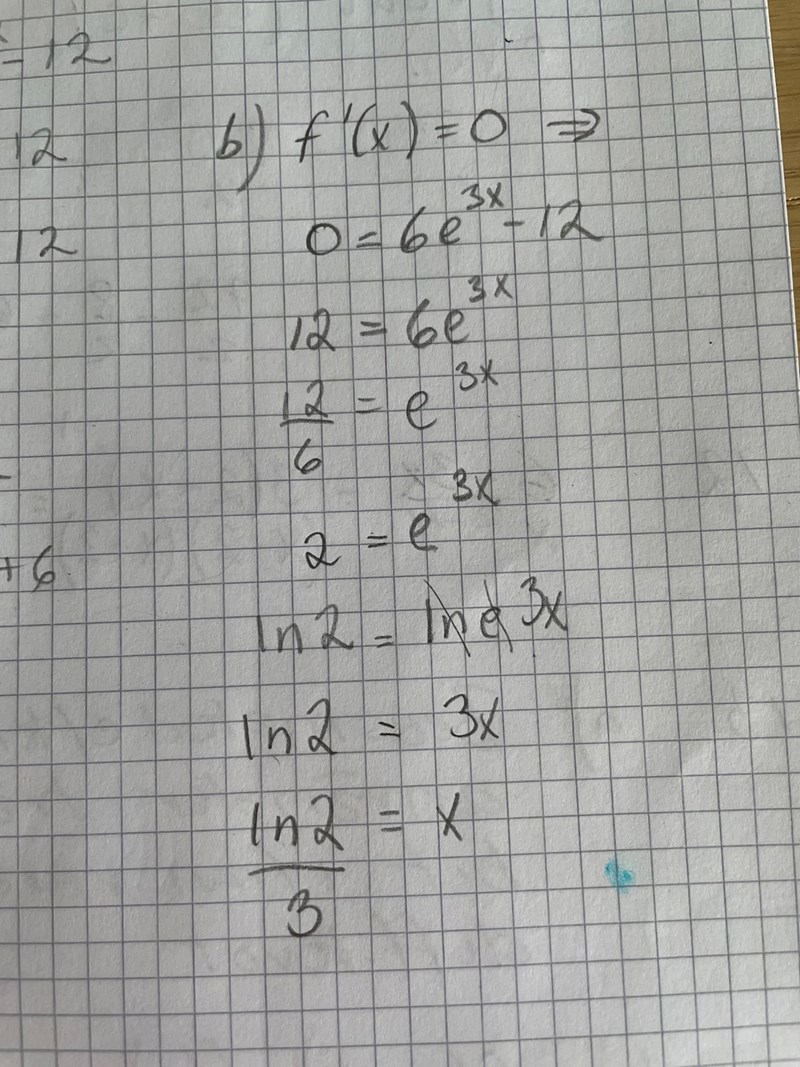 = 12
12
12
+ 6
b) f'(x) = 0 ⇒
0 = 6e^3x - 12
12 = 6e^3x
12/6 = e^3x
2 = e^3x
ln2 = ln e^3x
ln2 = 3x
ln2/3 = x